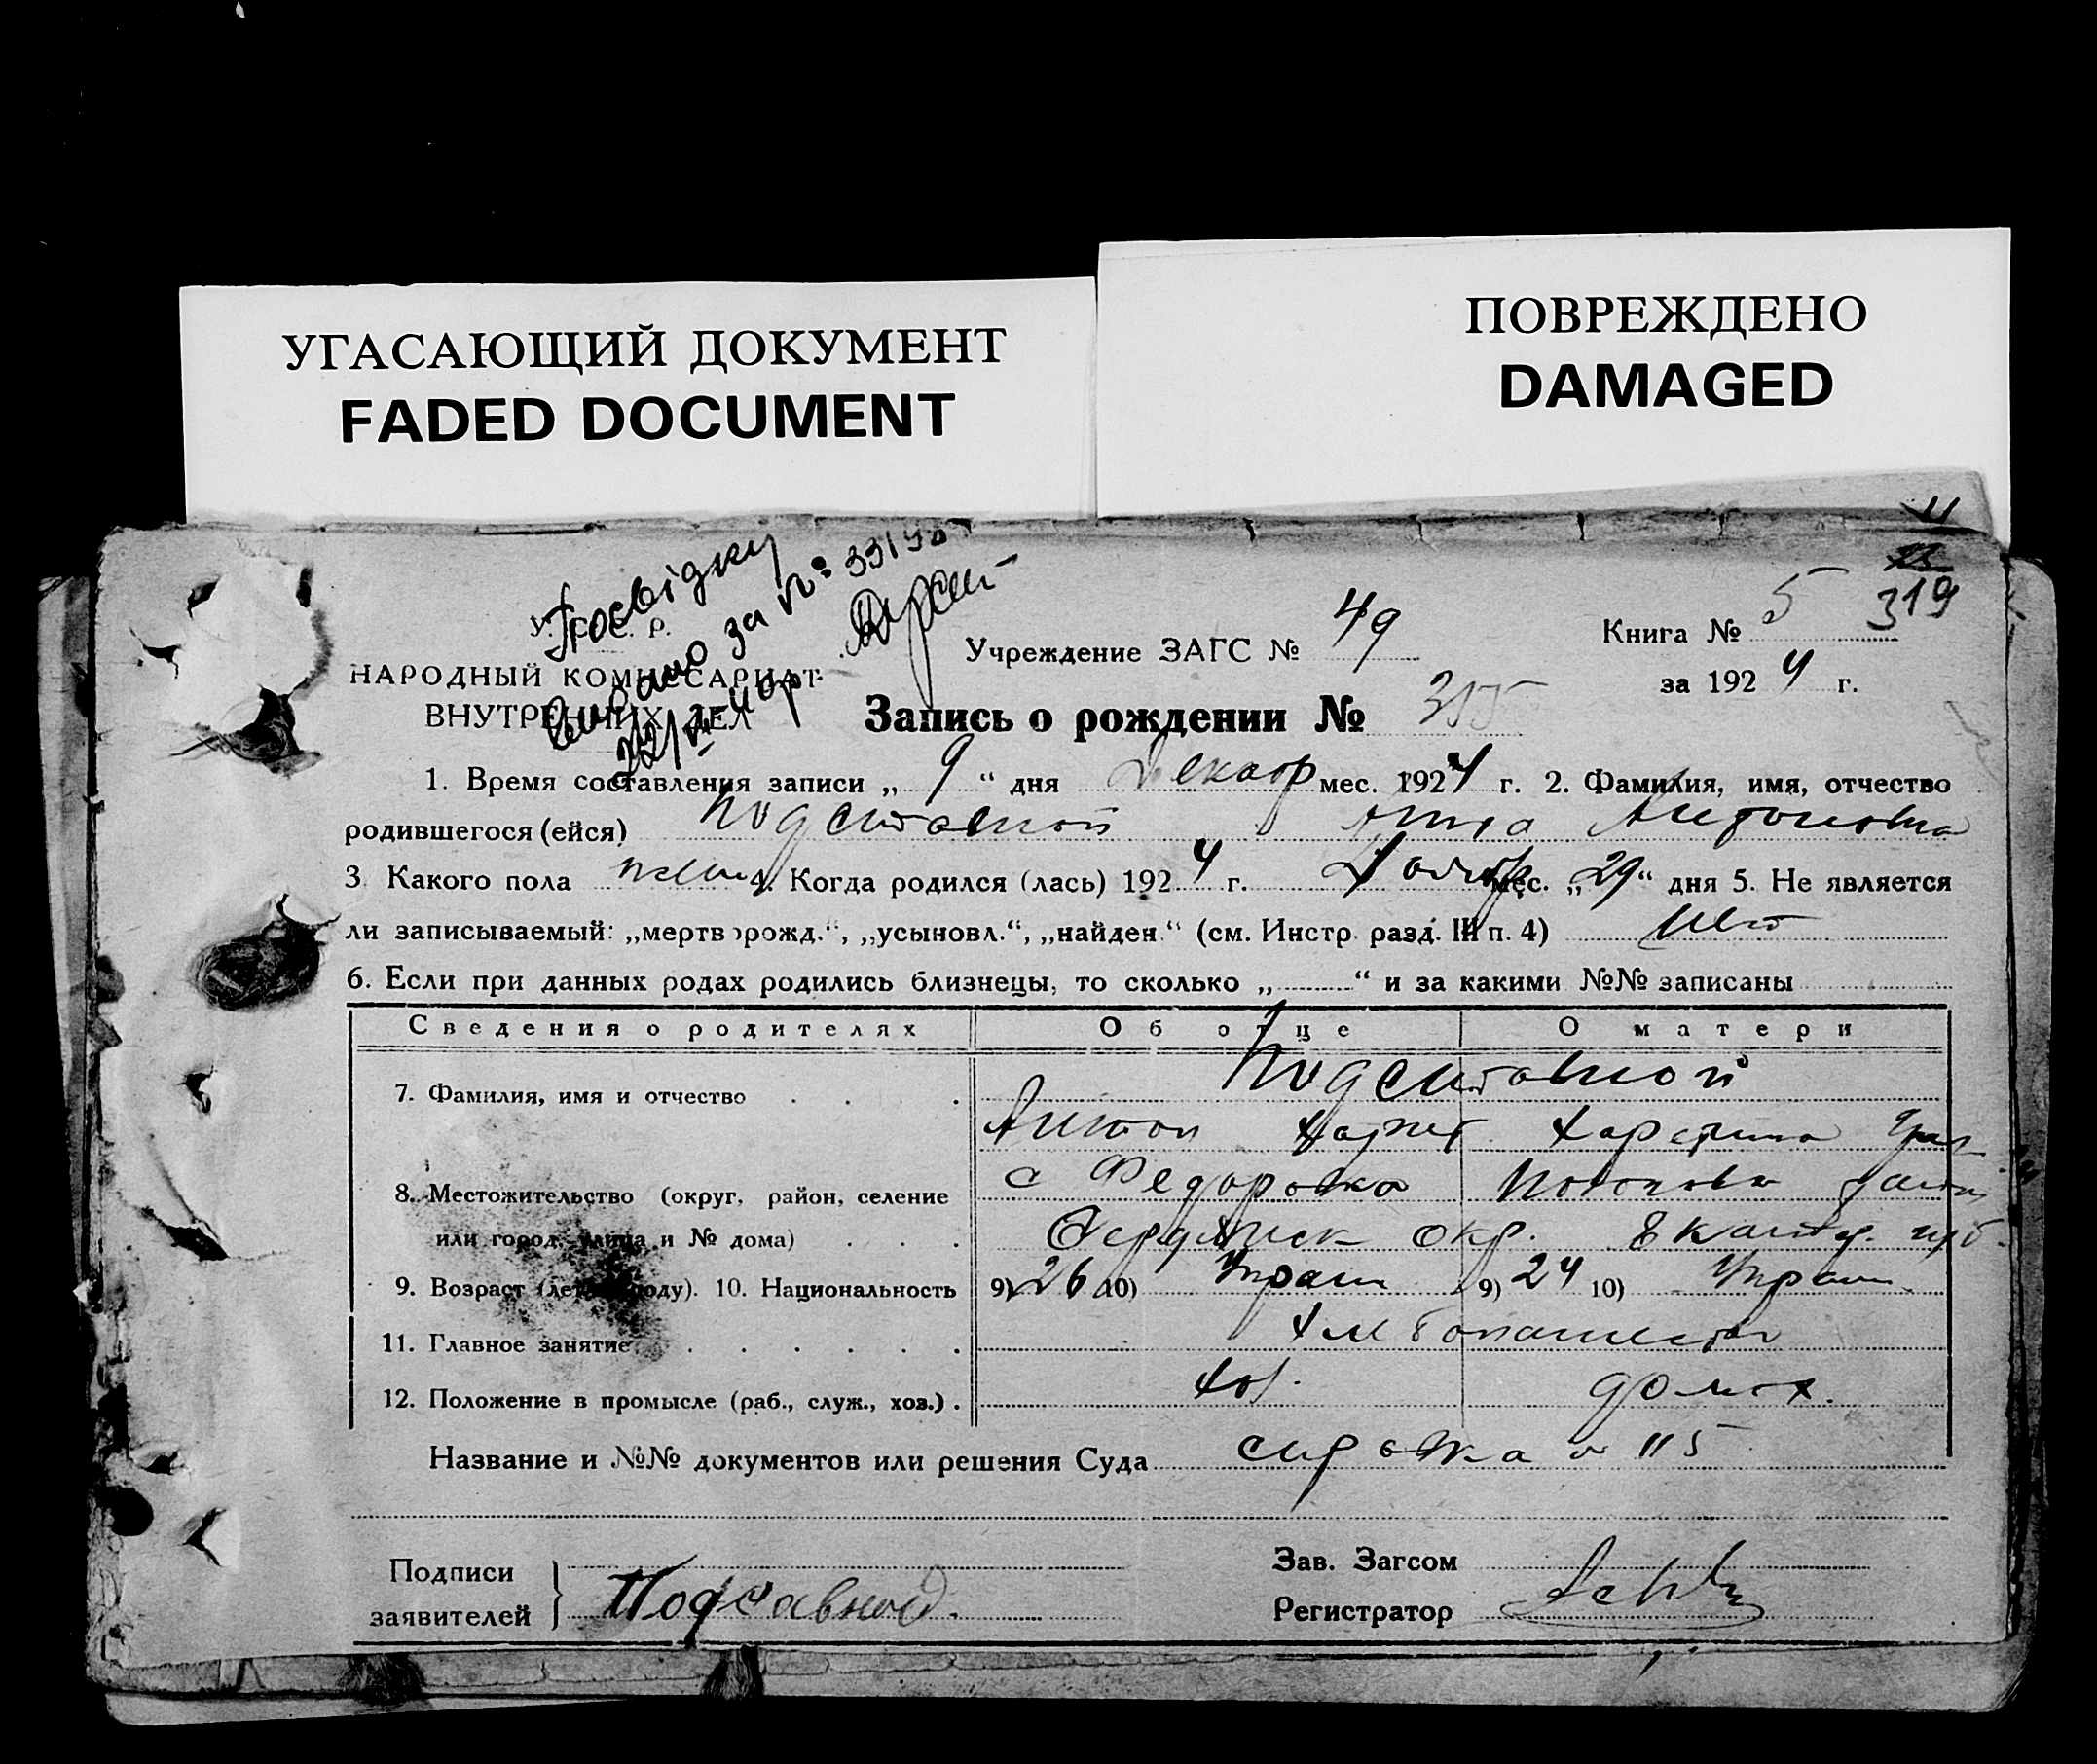 УГАСАЮЩИЙ ДОКУМЕНТ
FADED DOCUMENT
ПОВРЕЖДЕНО
DAMAGED
319
Посвідку
видано за № 3319
У. С. С. Р.
НАРОДНЫЙ КОМИССАРИАТ
ВНУТРЕННИХ ДЕЛ
Учреждение ЗАГС № 49
Книга № 5
за 1924 г.
Запись о рождении № 355
1. Время составления записи „ 9 “ дня Декабр мес. 1924 г. 2. Фамилия, имя, отчество
родившегося (ейся) Подставной Антоновна
3. Какого пола женс 4. Когда родился (лась) 1924 г. мес. „29“ дня 5. Не является
ли записываемый: „мертворожд.“, „усыновл.“, „найден.“ (см. Инстр. разд. III п. 4) нет
6. Если при данных родах родились близнецы, то сколько „ “ и за какими №№ записаны
Сведения о родителях Об отце О матери
7. Фамилия, имя и отчество Подставной
Антон Харит Харетина
8. Местожительство (округ, район, селение с Федоровка
или город, улица и № дома) Бердянск окр. Екатер. губ.
9. Возраст (лет, году). 10. Национальность 9) 26 10) Украин 9) 24 10) Украин
11. Главное занятие Хлебопашество
12. Положение в промысле (раб., служ., хоз.) хоз. домох.
Название и №№ документов или решения Суда справка № 115
Подписи
заявителей Подставной.
Зав. Загсом
Регистратор